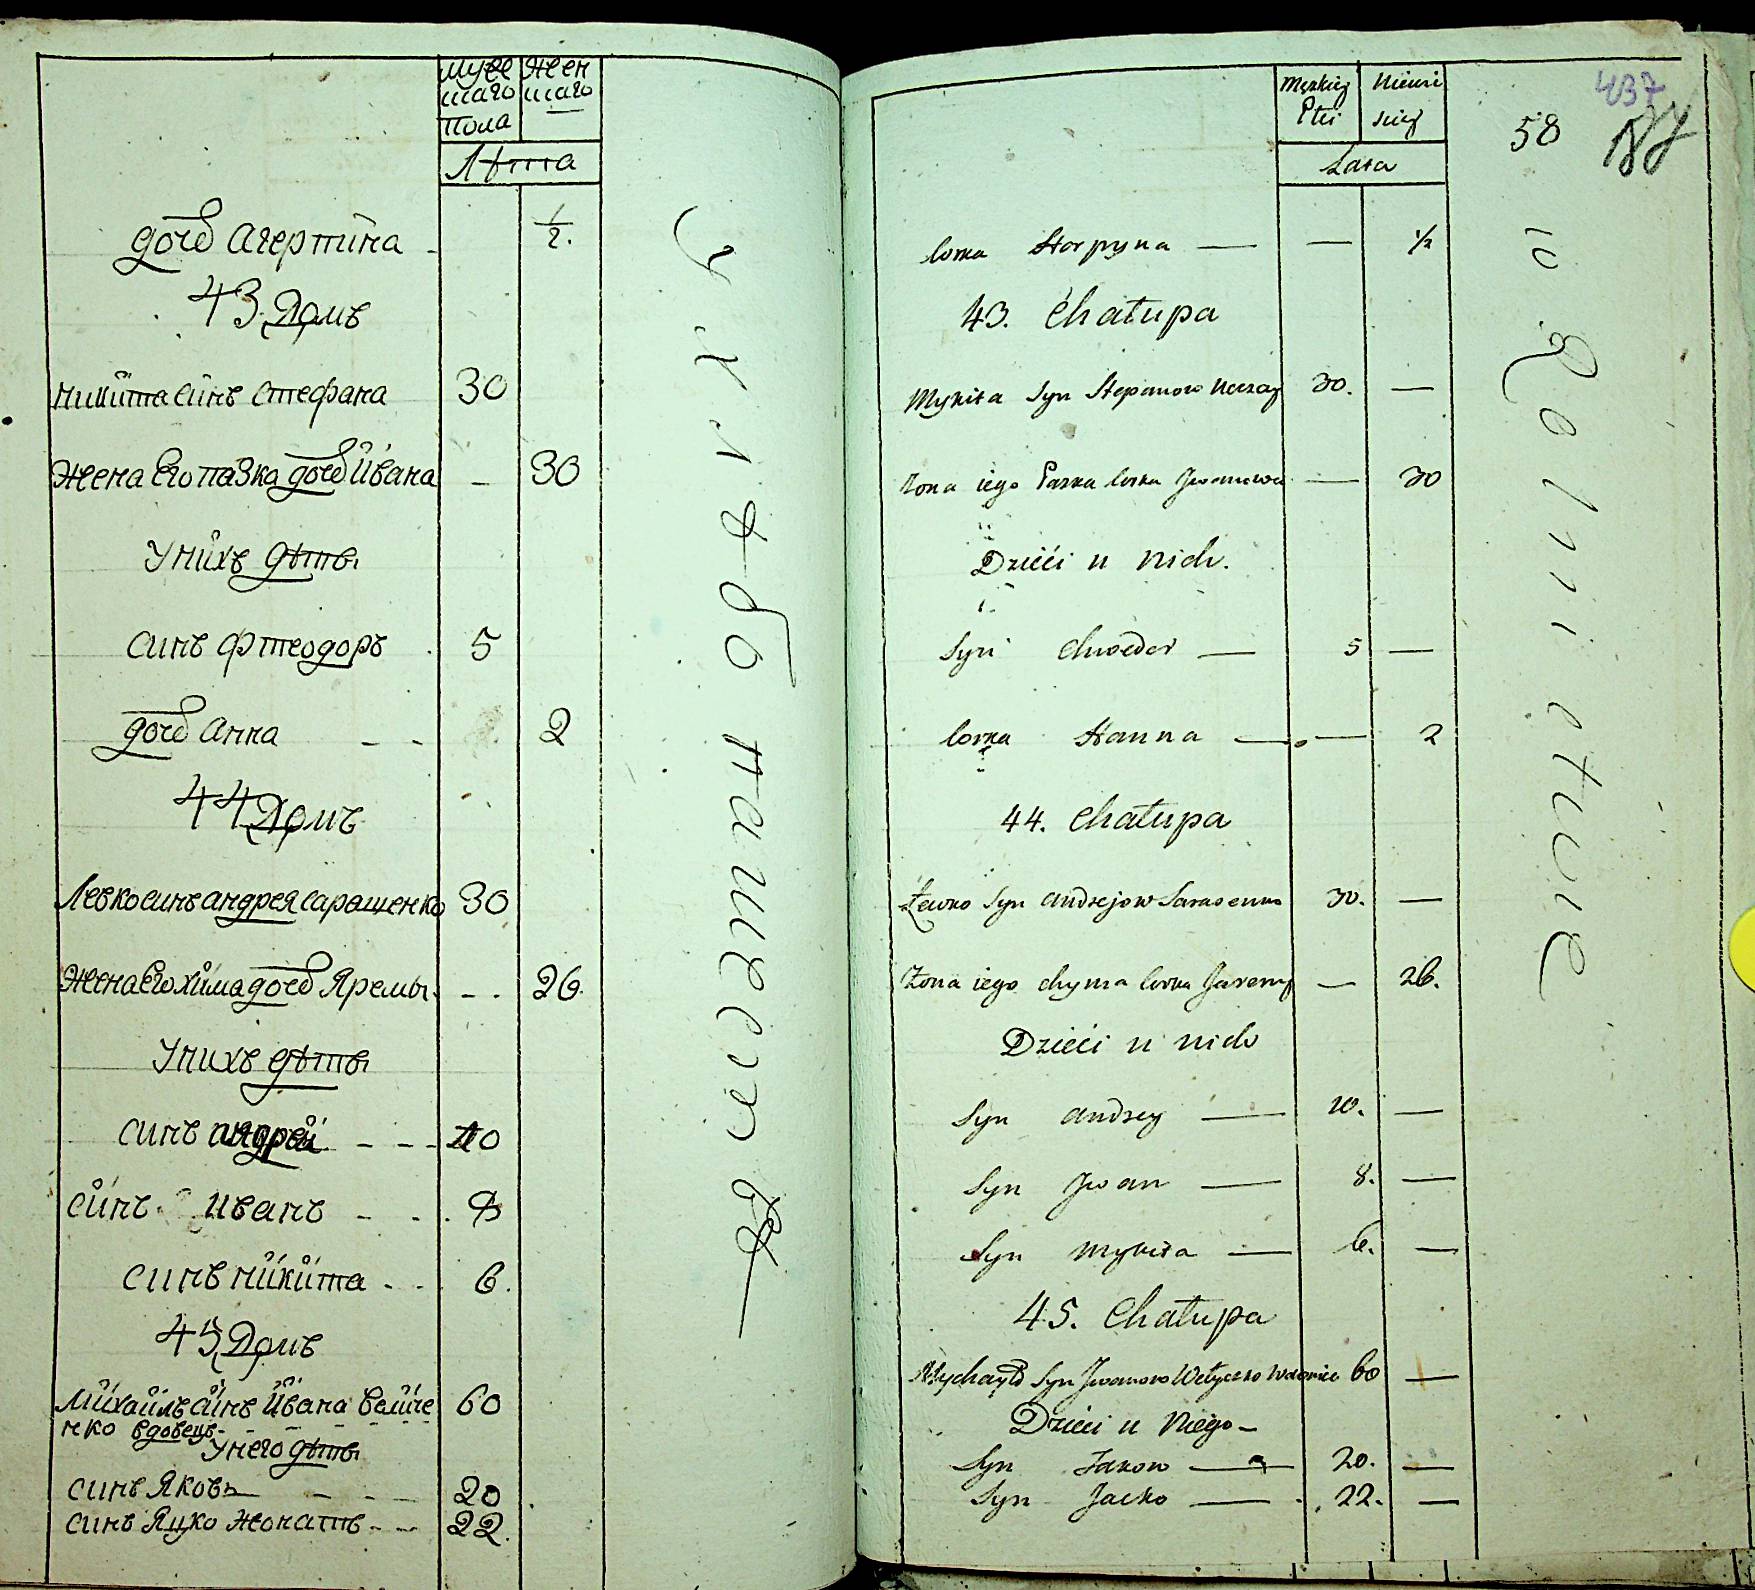 Мужескаго Пола
Женскаго
Лѣта
дочь Агерпина - 1/2.
43 Домъ
Никита синъ Стефана 30
Жена Его Пазка дочь Ивана - 30
У нихъ дѣти
синъ Фтеодоръ 5
дочь Анна - - 2
44 Домъ
Левко синъ Андрея Саращенко 30
Жена Его Хима дочь Яремы - - 26.
У нихъ дѣти
синъ Андрей - - - 10
синъ Иванъ - - 8
синъ Никита - - 6.
45 Домъ
Михаилъ синъ Ивана Величе 60
нко вдовецъ -
У него дѣти
синъ Яковъ - - - 20
синъ Яцко жонатъ - - 22.
Męzkiey Płci
Niewi sciey
Lata
58
437
Corka Horpyna — — 1/2
43. Chałupa
Mykita Syn Stepanow 30. —
Żona iego Pazka Corka Jwanowa — 30
Dzieći u nich.
Syn Chwedor — 5 —
Corka Hanna — — 2
44. Chałupa
Lewko Syn Andrzejow Saraszenko 30. —
Żona iego Chyma Corka Jaremy — 26.
Dzieći u nich
Syn Andrzey — 10. —
Syn Jwan — 8. —
Syn Mykita — 6. —
45. Chałupa
Mychayło Syn Jwanow Wełyczko Wdowiec 60 —
Dzieci u Niego -
Syn Jakow — 20. —
Syn Jacko — 22. —